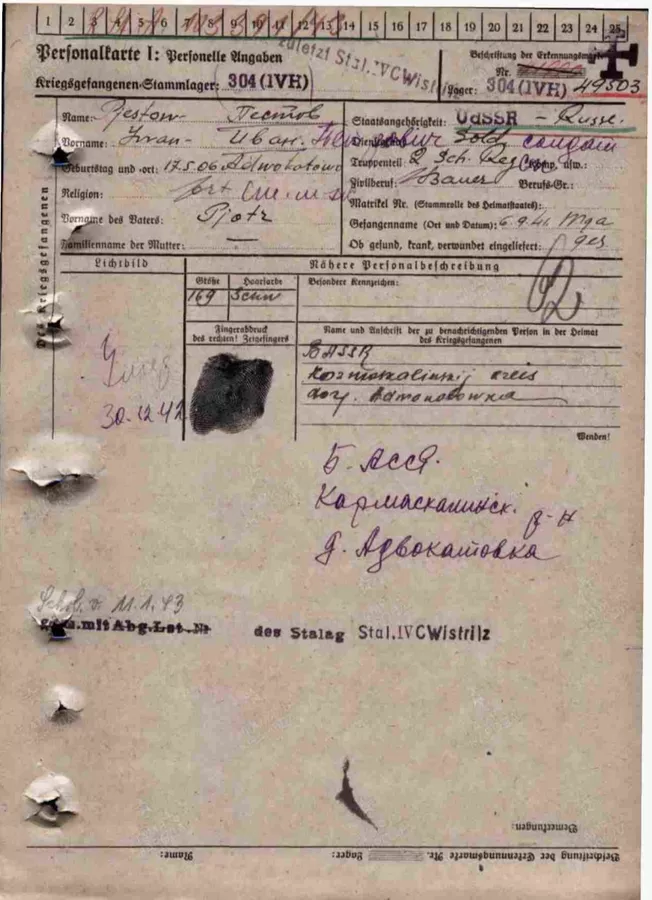 1 2 3 4 5 6 7 8 9 10 11 12 13 14 15 16 17 18 19 20 21 22 23 24 25
zuletzt Stal. IVC Wistritz
Personalkarte I: Personelle Angaben
Kriegsgefangenen-Stammlager: 304 (IVH)
Beschriftung der Erkennungsmarke
Nr. 49503
Lager: 304 (IVH)
Des Kriegsgefangenen
Name: Pestow Пестов
Vorname: Iwan Иван Петрович
Geburtstag und -ort: 17.5.06 Adwokatowo
Religion:
Vorname des Vaters: Pjotr
Familienname der Mutter: —
Staatsangehörigkeit: UdSSR - Russe.
Dienstgrad: Sold. солдат
Truppenteil: 2 Sch. Reg. Komp. usw.:
Zivilberuf: Bauer Berufs-Gr.:
Matrikel Nr. (Stammrolle des Heimatstaates):
Gefangenname (Ort und Datum): 6.9.41 Mga
Ob gesund, krank, verwundet eingeliefert: ges
Lichtbild
Nähere Personalbeschreibung
Größe Haarfarbe Besondere Kennzeichen:
169 Schw
Fingerabdruck
des rechten! Zeigefingers
Name und Anschrift der zu benachrichtigenden Person in der Heimat
des Kriegsgefangenen
BASSR
Kreis
Умер
30.12.42
Wenden!
Б. АССР.
Кармаскалинск. р-н
д. Адвокатовка
11.1.43
gem. mit Abg. Lst. Nr des Stalag Stal. IVC Wistritz
Bemerkungen:
Beschriftung der Erkennungsmarke Nr. Lager: Name: